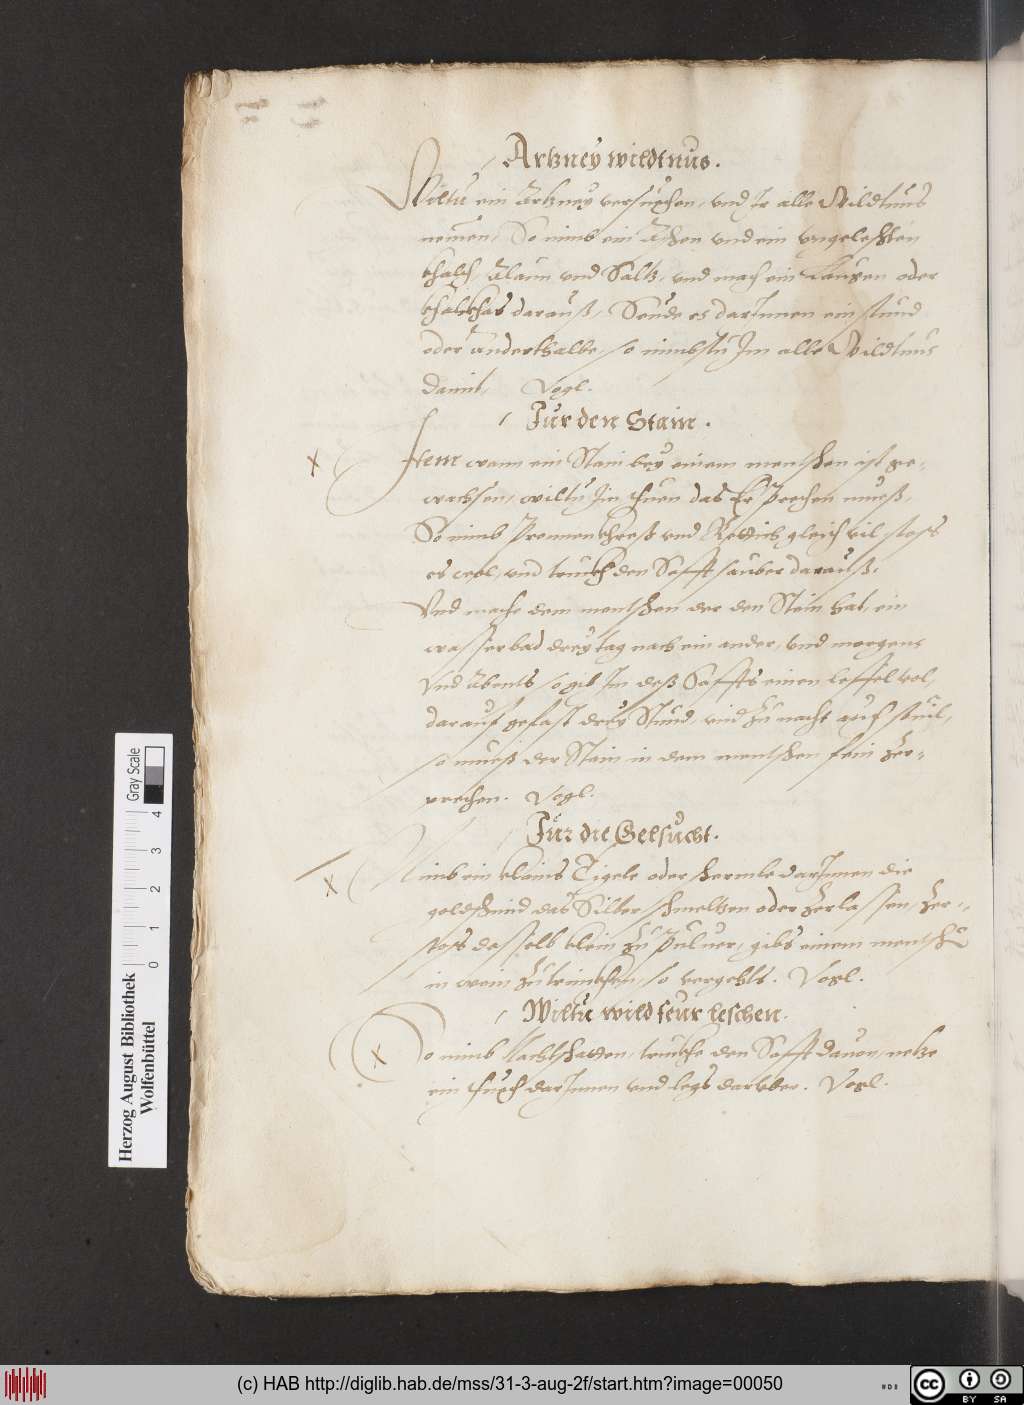 Artzney wildtnus.
Wiltu ein Artzney versuchen, vnd Ir alle Wildtnus
nemen, So nimb ein Aschen vnd ein vngeleschten
khalch, Alaun vnd Saltz, vnd mach ein Laugen oder
darauß, Seude es darInnen ein stund
oder anderthalbe, so nimbstu Im alle Wildtnus
damit, Vogl.
Für den Stain.
Item wann ein Stain bey einem menschen ist ge-
wachsen, wiltu In thuen das Er prechen mueß,
So nimb Prunnenkhreß vnd Rettich gleich vil stoss
es wol, vnd truckh den Safft sauber darauß,
Vnd mache dem menschen der den Stain hat, ein
wasserbad drey tag nach ein ander, vnd morgens
vnd Abents so gib Im deß Saffts einen leffel vol,
darauf gefast drey Stund, vnd zu nacht auf souil,
so mueß der Stain in dem menschen sein zer-
prechen. Vogl.
Für die Gelsucht.
Nimb ein klains Tigele oder schermle darInnen die
goldschmid das Silber schmeltzen oder zerlassen, zer-
stoss desselb klein zu Puluer, gibs einem menschn
in wein zutrinckhen, so vergehts. Vogl.
Wiltu wild feur leschen.
So nimb Nachtschatten, truckhe den Safft dauon, netze
ein thuch darInnen vnd legs darvber. Vogl.
Herzog August Bibliothek
Wolfenbüttel
0 1 2 3 4
Gray Scale
(c) HAB http://diglib.hab.de/mss/31-3-aug-2f/start.htm?image=00050
cc BY SA